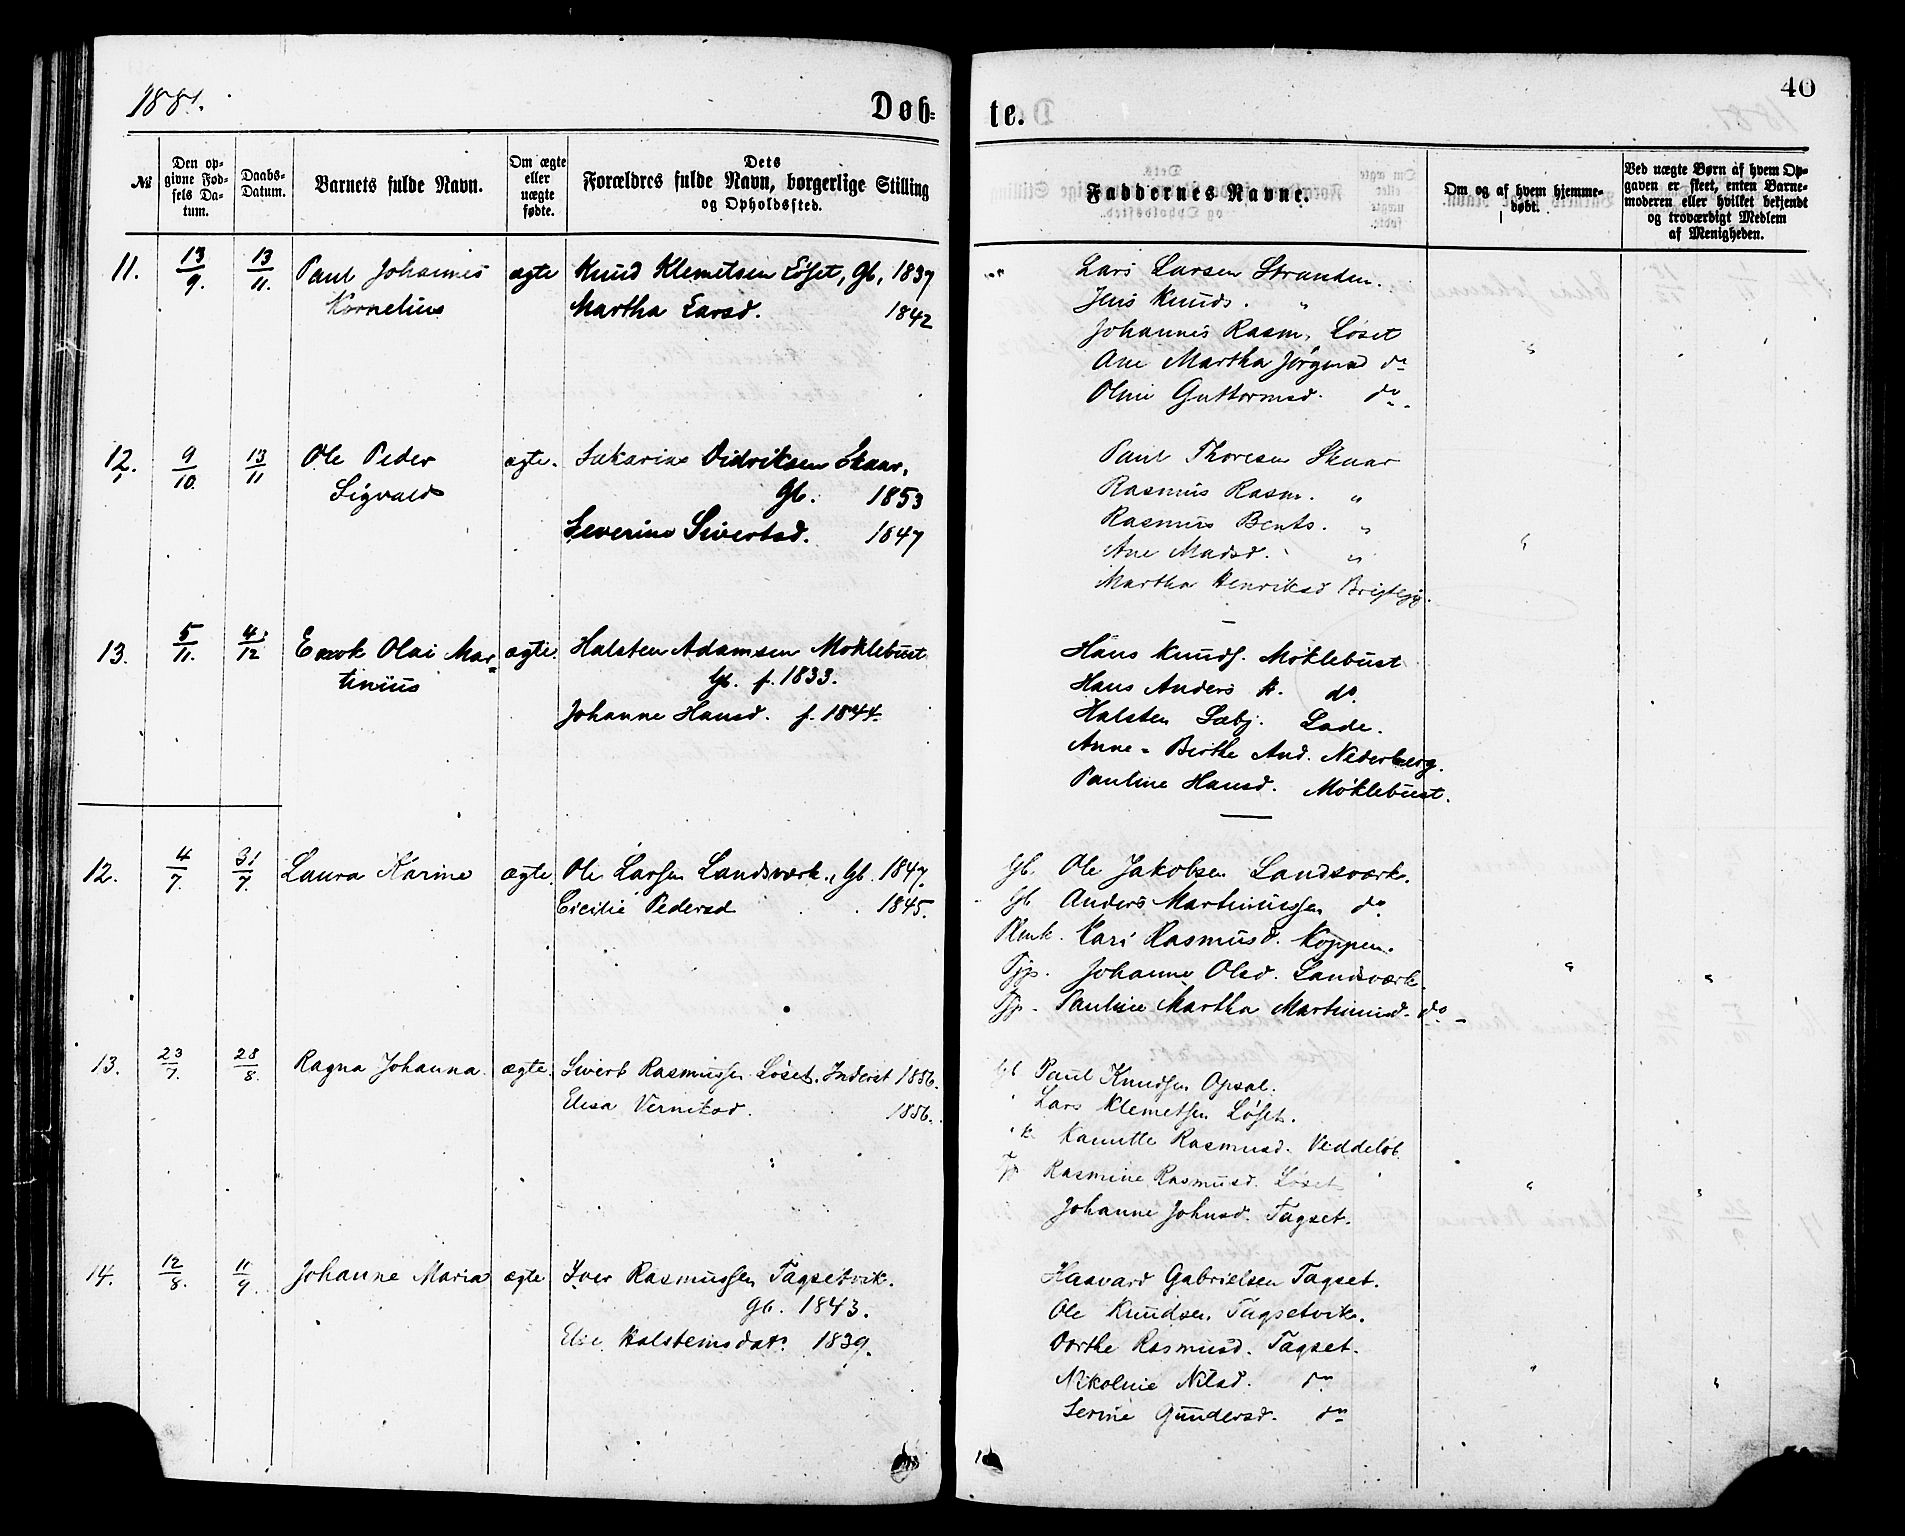 1881.
Døb-
te.
40
№
Den opgivne Fødsels Datum.
Daabs-Datum.
Barnets fulde Navn.
Om ægte eller uægte fødte.
Dets Forældres fulde Navn, borgerlige Stilling og Opholdssted.
Faddernes Navne.
Om og af hvem hjemmedøbt.
Ved uægte Børn af hvem Opgaven er skeet, enten Barnemoderen eller hvilket bekjendt og troværdigt Medlem af Menigheden.
11. 13/9. 13/11. Paul Johannes ægte Knud Klemetsen Løset, Gb, 1837
Kornelius Martha Larsd. 1842
Lars Larsen Stranden.
Jens Knuds. "
Johannes Rasm. Løset
Ane Martha Jørgensd do
Oline Guttormsd. do.
12. 9/10. 13/11 Ole Peder ægte. Sakarias Didriksen Skaar,
Sigvald Gb. 1853
Severine Sivertsd. 1847
Paul Thoresen Skaar
Rasmus Rasm. "
Rasmus Bents. "
Ane Madsd. "
Martha Henriksd
13. 5/11. 4/12 Enok Olai Mar- ægte. Halsten Adamsen Moklebust
tinius Gb. f. 1833.
Johanne Hansd. f. 1844.
Hans Knuds. Møklebust
Hans Anders K. do.
Halsten Sabj. Lade.
Anne-Birthe And. Nederberg.
Pauline Hansd. Møklebust.
12. 4/7. 31/7. Laura Karine ægte. Ole Larsen Landsværk., Gb. 1847.
Cicilie Pedersd 1845.
Gb. Ole Jakobsen Landsværk.
Gb Anders Martinussen do
Kari Rasmusd. Koppen.
Pjp. Johanne Olsd. Landsværk.
Pjp. Pauline Martha Martinusd. do
13. 23/7. 28/8. Ragna Johanna. ægte. Sivert Rasmussen Løset. Inderst 1856.
Elisa Verniksd. 1856.
Gb Paul Knudsen Opsal.
" Lars Klemetsen Løset.
" k. Kamille Rasmusd. Veddeløb
Pjp Rasmine Rasmusd. Løset
Johanne Johnsd. Tagset.
14. 12/8. 11/9. Johanne Maria ægte Iver Rasmussen Tagsetvik.
Gb. 1843.
Elie Halsteinsdatr 1839.
Haavard Gabrielsen Tagset.
Ole Knudsen Tagsetvik.
Dorthe Rasmusd. Tagset.
Nikoline Nilsd. do
Serine Gundersd. do